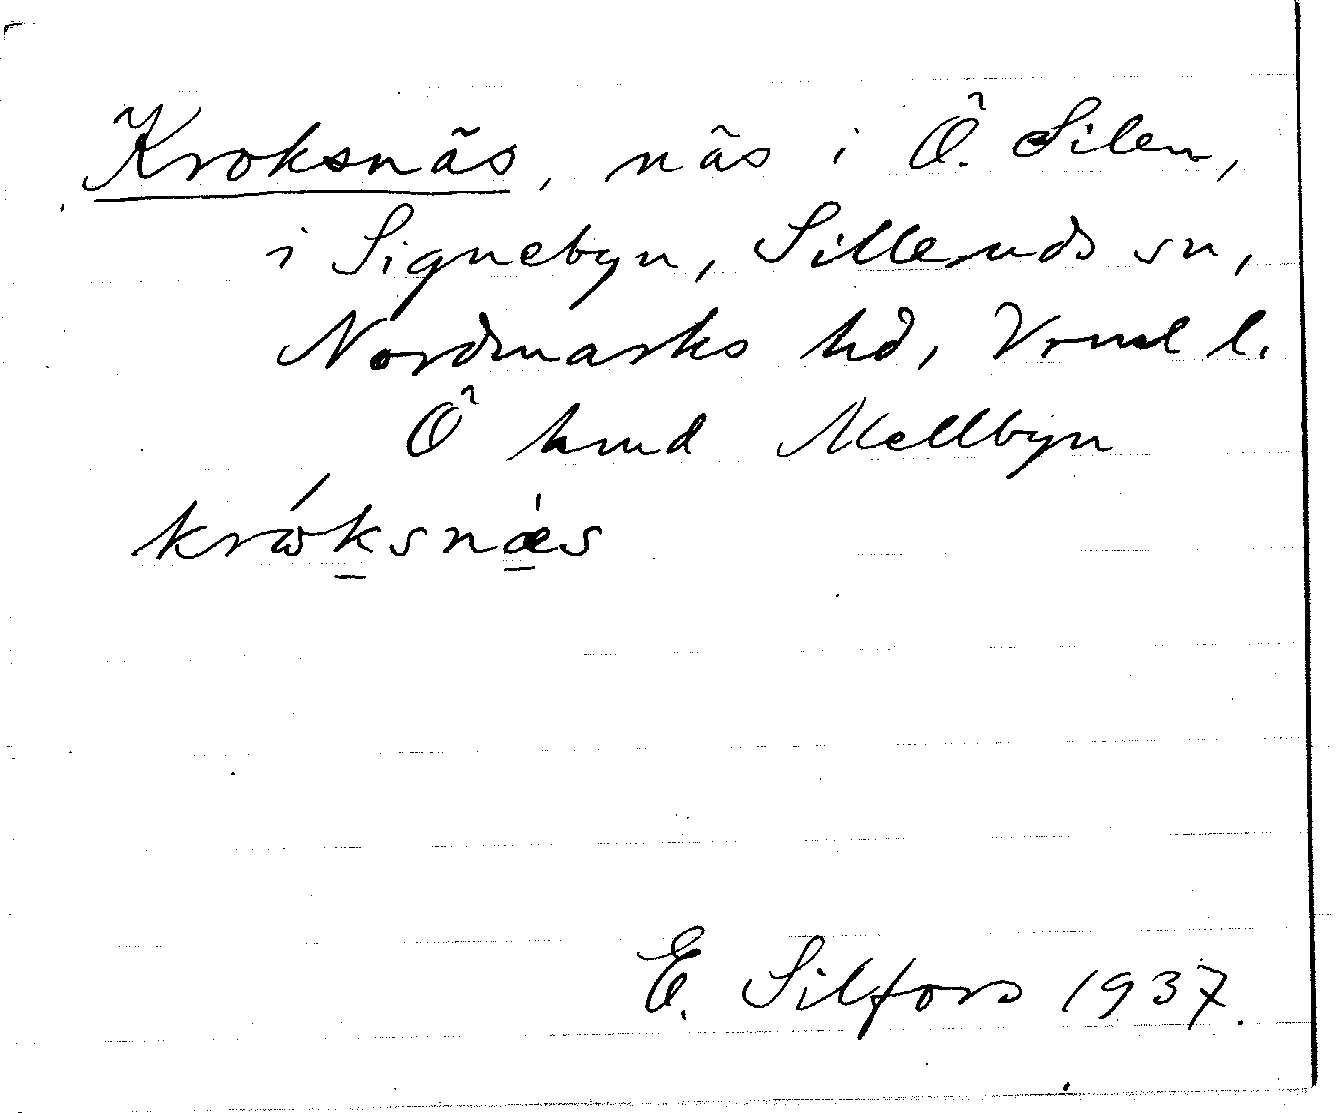 Kroksnäs, näs i Ö. Silen,
i Signebyn, Silleruds sn,
Nordmarks hd, Vrml l.
Ö hmd Mellbyn
krɷ́ksnæ̀s
E. Silfors 1937.